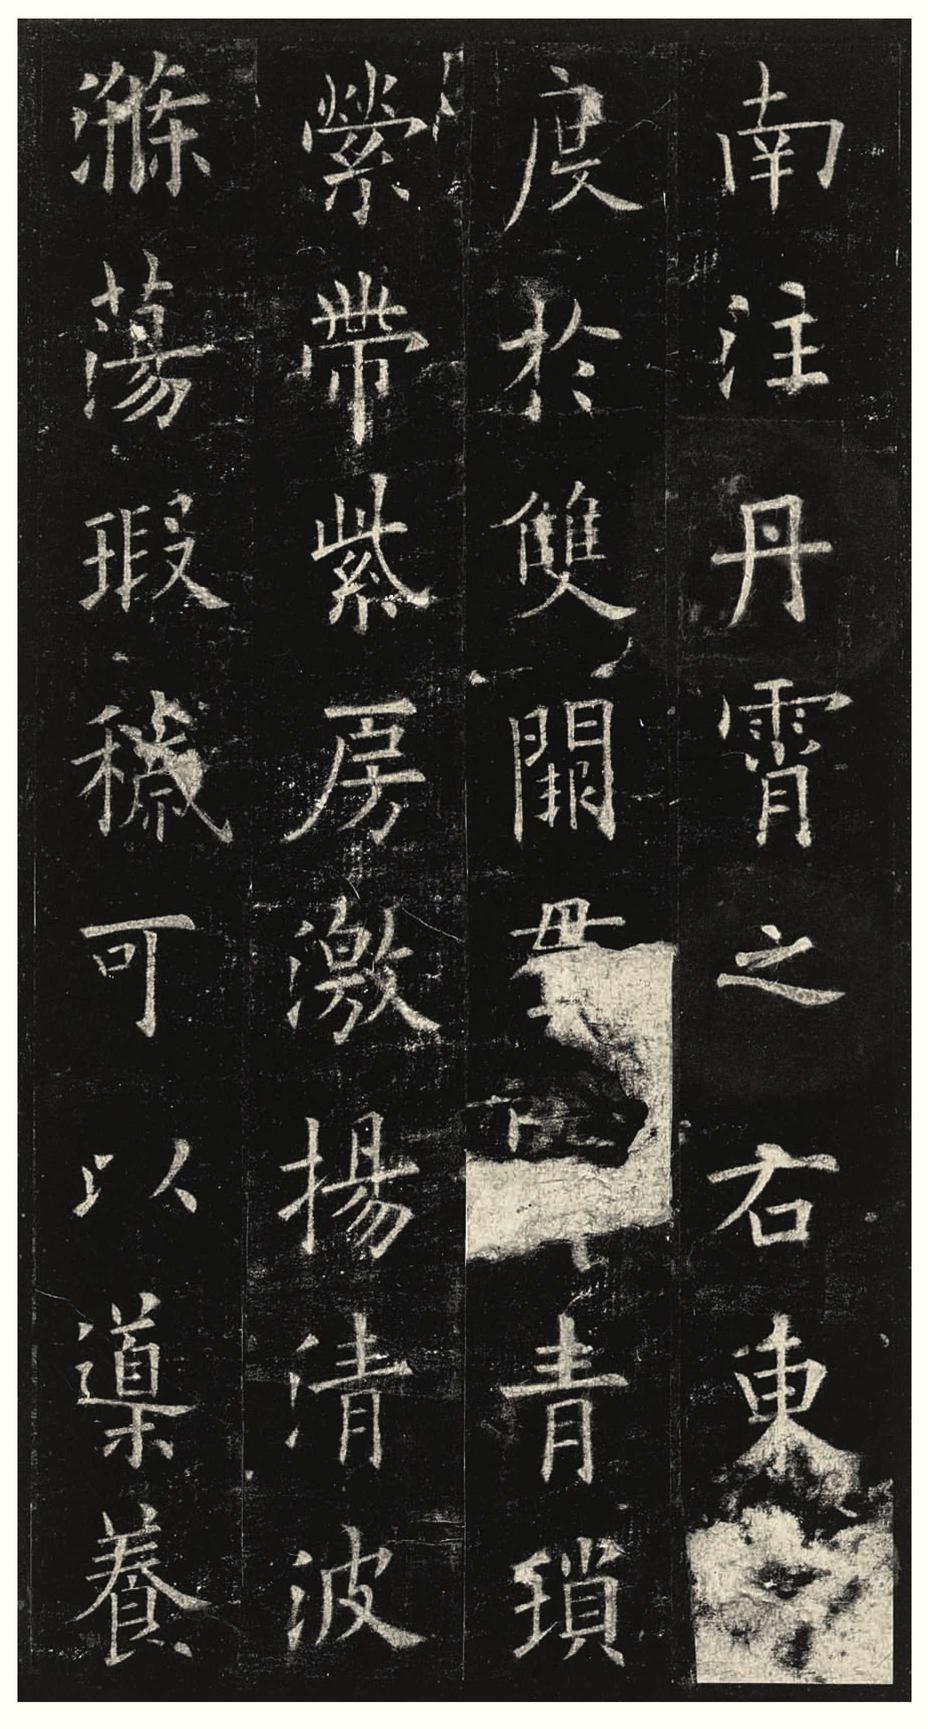 南注丹霄之右東
度於雙闕貫青瑣
縈帶紫房激揚清波
滌蕩瑕穢可以導養